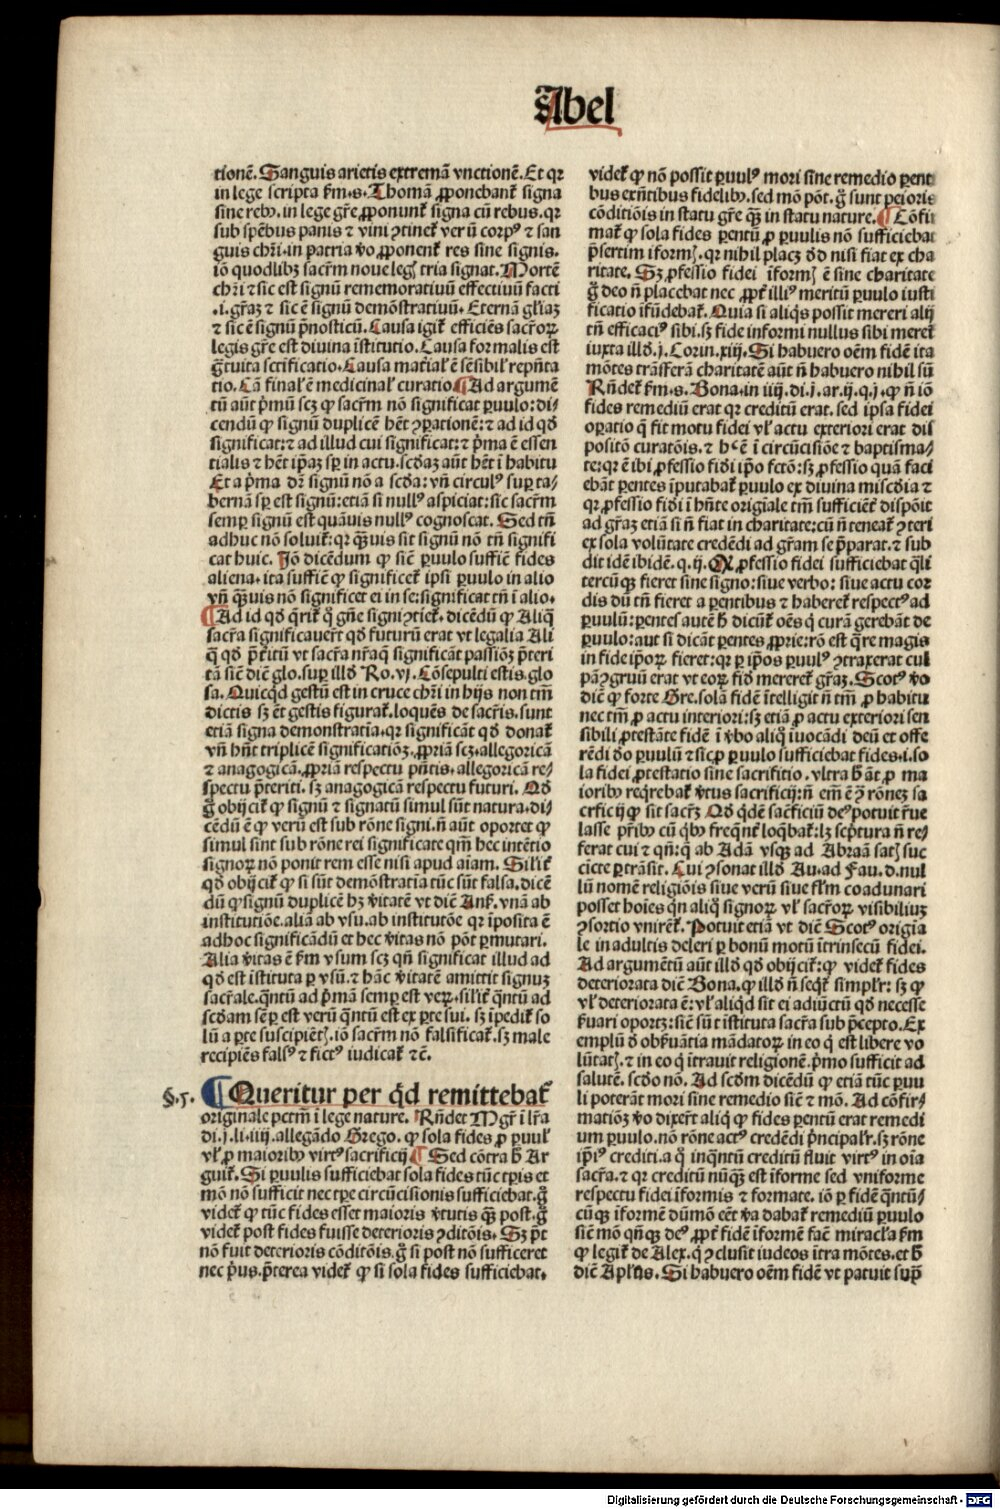 Abel
tionē. Sanguis arietis extremā vnctionē. Et qꝛ
in lege scripta ẜm.s. Thomā ꝓponebant᷑ signa
sine rebꝰ. in lege gr̄e ꝓponunt᷑ signa cū rebus. qꝛ
sub spēbus panis ⁊ vini ꝯtinet᷑ verū corpꝰ ⁊ san
guis chr̄i. in patria v̄o ꝓponent᷑ res sine signis.
iō quodlibꝫ sacr̄m noue legꝭ tria signat. Mortē
chr̄i ⁊ sic est signū rememoratiuū effectiuū facti
.i. gr̄aꝫ ⁊ sic ē signū demōstratiuū. Eternā gl̄iaꝫ
⁊ sic ē signū p̄nosticū. Causa igit᷑ efficiēs sacr̄oꝝ
legis gr̄e est diuina īstitutio. Causa formalis est
gr̄tuita scr̄ificatio. Causa mat̄ial᷑ ē sēsibil᷑ rep̄nta
tio. Cā final᷑ ē medicinal᷑ curatio ¶ Ad argumē
tū aūt p̄mū scꝫ ꝙ sacr̄m nō significat ꝑuulo: di⸗
cendū ꝙ signū duplicē hēt ꝯꝑationē: ⁊ ad id qd̄
significat: ⁊ ad illud cui significat: ⁊ p̄ma ē essen
tialis ⁊ hēt ip̄aꝫ sꝑ in actu. scd̄aꝫ aūt hēt ī habitu
Et a p̄ma dr̄ signū nō a scd̄a: vn̄ circulꝰ suꝑ ta⸗
bernā sꝑ est signū: etiā si nullꝰ aspiciat: sic sacr̄m
semꝑ signū est quāuis nullꝰ cognoscat. Sed tn̄
adhuc nō soluit᷑: qꝛ q̄ꝫuis sit signū nō tn̄ signifi
cat huic. Iō dicēdum ꝙ sic̄ ꝑuulo suffic̄ fides
aliena. ita suffic̄ ꝙ significet᷑ ipsi ꝑuulo in alio
vn̄ q̄ꝫuis nō significet ei in se: significat tn̄ ī alio.
¶ Ad id qd̄ q̄rit᷑ q̄ gn̄e signi ꝯtiet᷑. dicēdū ꝙ Aliq̄
sacr̄a significauer̄t qd̄ futurū erat vt legalia Ali
q̄ qd̄ p̄t̄itū vt sacr̄a nr̄aq̄ significāt passiōꝫ p̄teri
tā sic̄ dic̄ glo. suꝑ illd̄ Ro.vj. Cōsepulti estis. glo
sa. Quicqd̄ gestū est in cruce chr̄i in hijs non tm̄
dictis sꝫ ēt gestis figurat᷑. loquēs de sacr̄is. sunt
etiā signa demonstratīa. qꝛ significāt qd̄ donat᷑
vn̄ hn̄t triplicē significatiōꝫ. ꝓpriā scꝫ. allegoricā
⁊ anagogicā. ꝓpriā respectu pn̄tis. allegoricā re⸗
spectu p̄teriti. sꝫ anagogicā respectu futuri. Qd̄
g̊ obijcit᷑ ꝙ signū ⁊ signatū simul sūt natura. di⸗
cēdū ē ꝙ verū est sub rōne signi. n̄ aūt oportet ꝙ
simul sint sub rōne rei significate qm̄ hec intētio
signoꝝ nō ponit rem esse nisi apud aīam. Silīt᷑
qd̄ obijcit᷑ ꝙ si sūt demōstratīa tūc sūt falsa. dicē
dū ꝙ signū duplicē hꝫ v̄itatē vt dic̄ Ans᷑. vnā ab
institutiōe. aliā ab vsu. ab institutōe qꝛ īposita ē
adhoc significādū et hec v̄itas nō pōt ꝑmutari.
Alia v̄itas ē ẜm vsum scꝫ qn̄ significat illud ad
qd̄ est īstituta ꝑ vsū. ⁊ hāc v̄itatē amittit signuꝫ
sacr̄ale. q̄ntū ad p̄mā semꝑ est veꝝ. silīt᷑ q̄ntū ad
scd̄am sēꝑ est verū q̄ntū est ex ꝑte sui. sꝫ īpedit᷑ so
lū a ꝑte suscipiētꝭ. iō sacr̄m nō falsificat᷑. sꝫ male
recipiēs falsꝰ ⁊ fictꝰ iudicat᷑ ⁊c̄.
§.5. ¶ Queritur per qd̄ remittebat᷑
originale pctm̄ ī lege nature. Rn̄det Mgr̄ ī lr̄a
di.j.li.iiij. allegādo Grego. ꝙ sola fides ꝓ ꝑuul᷑
vl᷑ ꝓ maioribꝰ virtꝰ sacrificij ¶ Sed cōtra h̄ Ar
guit᷑. Si ꝑuulis sufficiebat sola fides tūc tꝑis et
mō nō sufficit nec tꝑe circūcisionis sufficiebat. g̊
videt᷑ ꝙ tūc fides esset maioris v̄tutis q̄ꝫ post. g̊
videt᷑ post fides fuisse deterioris ꝯditōis. Sꝫ p̄t
nō fuit deterioris cōditōis. g̊ si post nō sufficeret
nec p̄us. p̄terea videt᷑ ꝙ si sola fides sufficiebat.
videt᷑ ꝙ nō possit ꝑuulꝰ mori sine remedio ꝑent
bus exn̄tibus fidelibꝰ. sed mō pōt. g̊ sunt peioris
cōditiōis in statu gr̄e q̄ꝫ in statu nature. ¶ Cōfir
mat᷑ ꝙ sola fides ꝑentū ꝓ ꝑuulis nō sufficiebat
p̄sertim iformꝭ. qꝛ nihil placꝫ do̅ nisi fiat ex cha
ritate. Sꝫ ꝓfessio fidei iformꝭ ē sine charitate
g̊ deo n̄ placebat nec ꝓpt᷑ illiꝰ meritū ꝑuulo iusti
ficatio īfūdebat᷑. Quia si aliq̄s possit mereri alij
tn̄ efficaciꝰ sibi. sꝫ fide informi nullus sibi meret᷑
iuxta illd̄.j. Corin.xiij. Si habuero oēm fidē ita
mōtes trāsferā charitatē aūt n̄ habuero nihil sū
Rn̄det ẜm.s. Bona. in iiij.di.j.ar.ij.q.j. ꝙ n̄ iō
fides remediū erat qꝛ creditū erat. sed ipsa fidei
oꝑatio q̄ fit motu fidei vl᷑ actu exteriori erat dis
positō curatōis. ⁊ hᷤ ē ī circūcisiōe ⁊ baptisma⸗
te: qꝛ ē ibi ꝓfessio fidei ip̄o fctō: sꝫ ꝓfessio quā faci
ebāt ꝑentes īputabat᷑ ꝑuulo ex diuina miscd̄ia ⁊
qꝛ ꝓfessio fidi ī hn̄te origiale tm̄ sufficiēt᷑ dispōit
ad gr̄aꝫ etiā si n̄ fiat in charitate: cū n̄ teneat᷑ ꝯteri
ex sola volūtate credēdi ad gr̄am se p̄parat. ⁊ sub
dit idē ibidē.q.ij. Q ꝓfessio fidei sufficiebat q̄li
tercūqꝫ fieret sine signo: siue verbo: siue actu cor
dis dū tn̄ fieret a ꝑentibus ⁊ haberet᷑ respectꝰ ad
ꝑuulū: ꝑentes autē h̄ dicūt᷑ oēs q̄ curā gerebāt de
ꝑuulo: aut si dicāt ꝑentes ꝓprie: rō est q̄re magis
in fide ip̄oꝝ fieret: qꝛ ꝑ ip̄os ꝑuulꝰ ꝯtraxerat cul
pā ꝯgruū erat vt eoꝝ fid̄ mereret᷑ gr̄aꝫ. Scotꝰ v̄o
dic̄ ꝙ forte Gre. solā fidē ītelligit n̄ tm̄ ꝓ habitu
nec tm̄ ꝓ actu interiori: sꝫ etiā ꝓ actu exteriori sen
sibili ꝓtestāte fidē ī v̄bo aliq̄ iuocādi deū et offe
rēdi do̅ ꝑuulū ⁊ sic ꝓ ꝑuulo sufficiebat fides.i. so
la fidei ꝓtestatio sine sacrifitio. vltra h̄ āt ꝓ ma
ioribꝰ req̄rebat᷑ v̄tus sacrificij: n̄ em̄ ē ꝯ rōneꝫ sa
crficij ꝙ sit sacr̄ꝫ Qd̄ q̄dē sac̄ficiū deꝰ potuit r̄ue
lasse pr̄ibꝰ cū q̄bꝰ freq̄nt᷑ loq̄bat᷑: lꝫ scp̄tura n̄ re⸗
ferat cui ⁊ qn̄: q̄ ab Adā vsqꝫ ad Abraā satꝭ suc
cīcte ꝑtrāsit. Cui ꝯsonat illd̄ Au. ad Fau. d. nul
lū nomē religiōis siue verū siue fl̄m coadunari
posset hoīes q̄n aliq̄ signoꝝ vl᷑ sacr̄oꝝ visibiliuꝫ
ꝯsortio vnirēt᷑. Potuit etiā vt dic̄ Scotꝰ origia
le in adultis deleri ꝑ bonū motū ītrinsecū fidei.
Ad argumētū aūt illd̄ qd̄ obijcit᷑: ꝙ videt᷑ fides
deteriorata dic̄ Bona. ꝙ illd̄ n̄ seq̄t᷑ simpl᷑r: sꝫ ꝙ
vl᷑ deteriorata ē: vl᷑ aliqd̄ sit ei adiūctū qd̄ necesse
ẜuari oportꝫ: sic̄ sūt īstituta sacr̄a sub p̄cepto. Ex
emplū d̄ obẜuātia mādatoꝝ in eo q̄ est libere vo
lūtatꝭ. ⁊ in eo q̄ ītrauit religionē. p̄mo sufficit ad
salutē. scd̄o nō. Ad scd̄m dicēdū ꝙ etiā tūc ꝑuu
li poterāt mori sine remedio sic̄ ⁊ mō. Ad cōfir⸗
matiōꝫ v̄o dixer̄t aliq̄ ꝙ fides ꝑentū erat remedi
um ꝑuulo. nō rōne actꝰ credēdi p̄ncipal᷑r. sꝫ rōne
ip̄iꝰ crediti. a q̄ inq̄ntū creditū fluit virtꝰ in oīa
sacr̄a. ⁊ qꝛ creditū nūq̄ꝫ est īforme sed vniforme
respectu fidei īformis ⁊ formate. iō ꝑ fidē q̄ntū⸗
cūqꝫ īformē dūmō eēt v̄a dabat᷑ remediū ꝑuulo
sic̄ mō qn̄qꝫ deꝰ ꝓpt᷑ fidē īformē fac̄ miracl̄a ẜm
ꝙ legit᷑ de Alex. q̄ ꝯclusit iudeos ītra mōtes. et h̄
dic̄ Apl̄us. Si habuero oēm fidē vt patuit sup̄
Digitalisierung gefördert durch die Deutsche Forschungsgemeinschaft - DFG